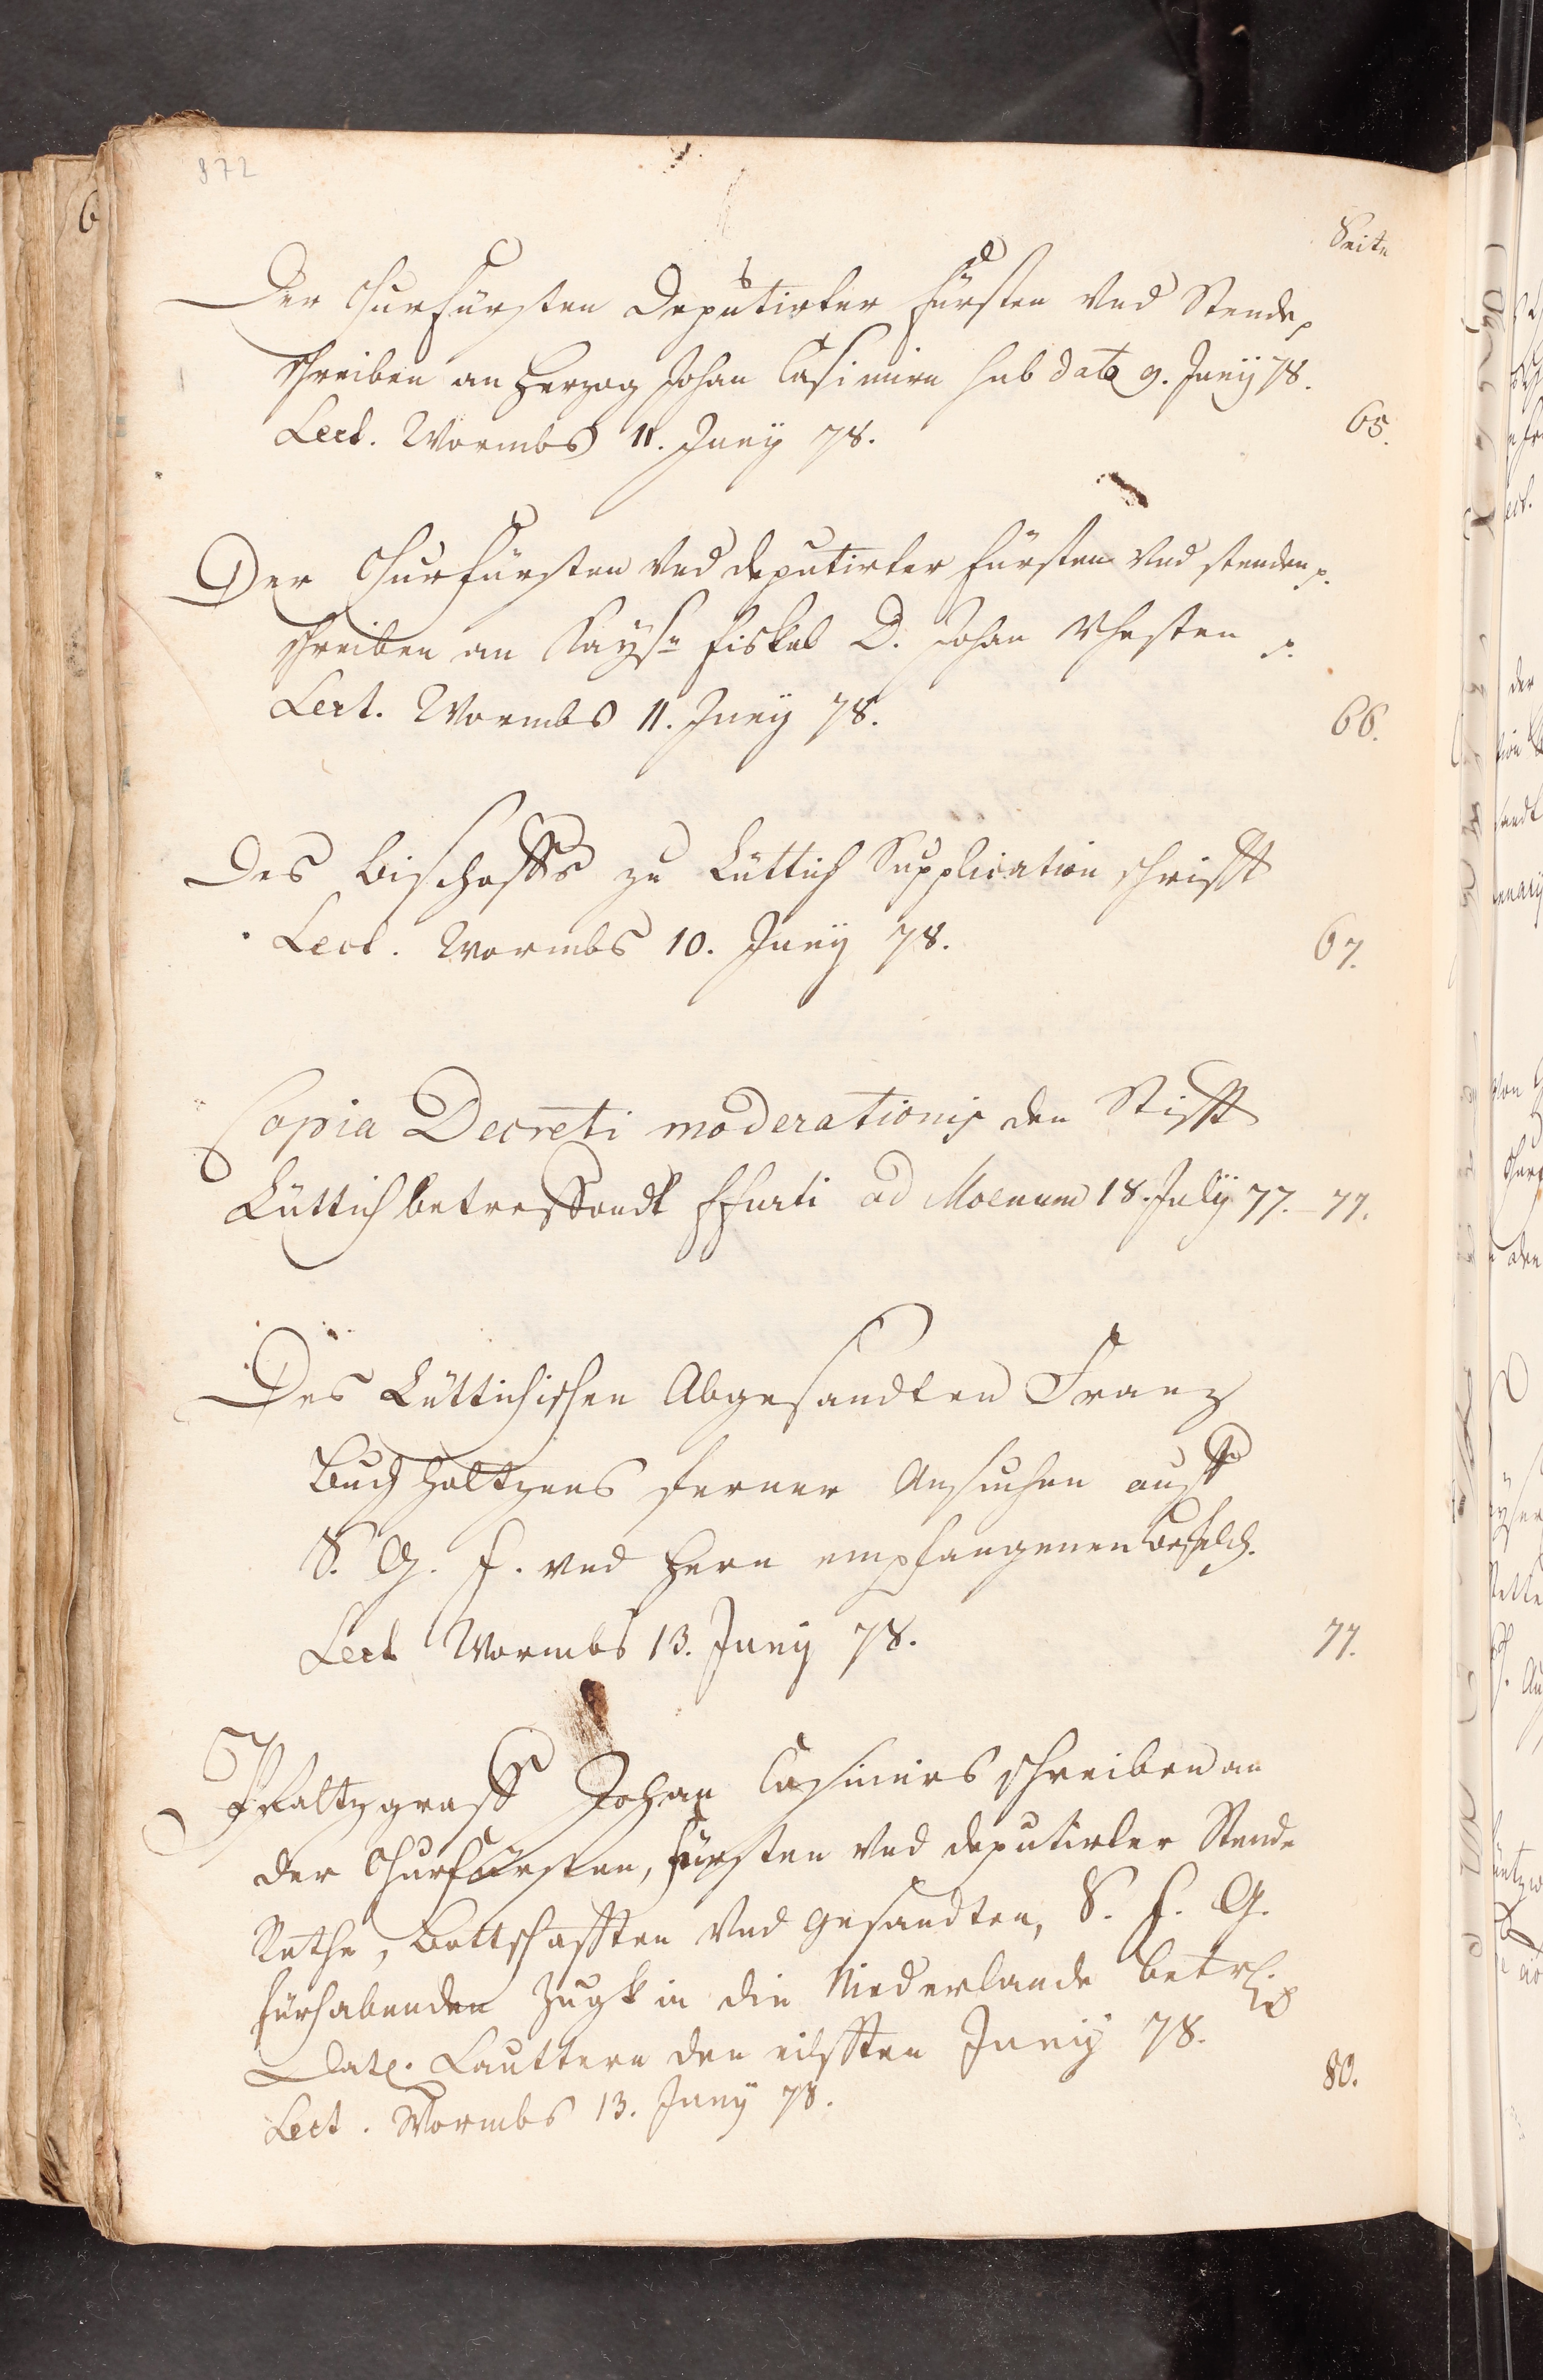 872
Seite
Der Churfürsten Deputirter Fürsten vnd Stende p
schreiben an Herzog Johan Casimirn sub dato 9. Junÿ 78.
Lect. Wormbs 11. Junÿ 78. 65.
Der Churfürsten vnd deputirter Fürsten vnd stenden p.
schreiben an Kaysn Fiskal D. Johan Vhesten p.
Lect. Wormbs 11. Junÿ 78. 66.
Des Bischoffs zu Lüttich Supplication schrifft
Lect. Wormbs 10. Junÿ 78. 67.
Copia Decreti moderationis den Stifft
Lüttich betreffendt Ffurti ad Moenum 18. Julÿ 77. - 77.
Des Lüttichischen Abgesandten Franz
Buchholtzens ferner Ansuchen auff
S. G. F. vnd Hern empfangenen Befelch.
Lect Wormbs 13. Junÿ 78. 77.
Pfaltzgraff Johan Casimirs schreiben an
der Churfürsten, Fürsten vnd deputirter Stende
Rethe, Bottschafften vnd Gesandten, S. F. G.
fürhabenden Zugk in die Niederlande betrf.
Dat. Lauttern den eilfften Junÿ 78.
Lect. Wormbs 13. Junÿ 78. 80.